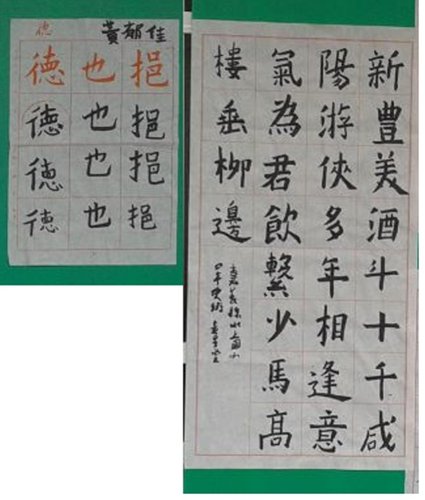 德
黃郁佳
挹挹挹挹
也也也也
德德德德
新豐美酒斗十千咸
陽游俠多年相逢意
氣為君飲繫少馬高
樓垂柳邊